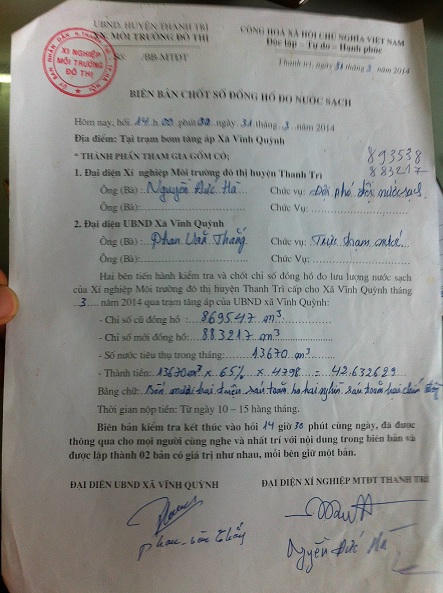 UBND. HUYỆN THANH TRÌ
XN. MÔI TRƯỜNG ĐÔ THỊ
Số: /BB-MTĐT
CỘNG HOÀ XÃ HỘI CHỦ NGHĨA VIỆT NAM
Độc lập – Tự do – Hạnh phúc
Thanh trì, ngày 31 tháng 3 năm 2014
XÍ NGHIỆP
MÔI TRƯỜNG
ĐÔ THỊ
BIÊN BẢN CHỐT SỐ ĐỒNG HỒ ĐO NƯỚC SẠCH
Hôm nay, hồi 14 h 00 phút, ngày 31 tháng 3 năm 2014
Địa điểm: Tại trạm bơm tăng áp Xã Vĩnh Quỳnh
* THÀNH PHẦN THAM GIA GỒM CÓ:
893538
883217
1. Đại diện Xí nghiệp Môi trường đô thị huyện Thanh Trì
Ông (Bà): Nguyễn Đức Hà Chức vụ: Đội phó đội nước sạch
Ông (Bà): Chức Vụ:
2. Đại diện UBND Xã Vĩnh Quỳnh
Ông (Bà): Phan Văn Thắng Chức vụ: Trưc trạm
Ông (Bà): Chức vụ:
Hai bên tiến hành kiểm tra và chốt chỉ số đồng hồ đo lưu lượng nước sạch
của Xí nghiệp Môi trường đô thị huyện Thanh Trì cấp cho Xã Vĩnh Quỳnh tháng
3 năm 2014 qua trạm tăng áp của UBND xã Vĩnh Quỳnh:
- Chỉ số cũ đồng hồ: 869547 m3
- Chỉ số mới đồng hồ: 883217 m3
- Số nước tiêu thụ trong tháng: 13670 m3
- Thành tiền: 13670m3 x 65% x 4798 = 42.632629
Bằng chữ: Bốn mươi hai triệu sáu trăm ba hai nghìn sáu trăm hai chín đồng
Thời gian nộp tiền: Từ ngày 10 – 15 hàng tháng.
Biên bản kiểm tra kết thúc vào hồi 14 giờ 30 phút cùng ngày, đã được
thông qua cho mọi người cùng nghe và nhất trí với nội dung trong biên bản và
được lập thành 02 bản có giá trị như nhau, mỗi bên giữ một bản.
ĐẠI DIỆN UBND XÃ VĨNH QUỲNH
ĐẠI DIỆN XÍ NGHIỆP MTĐT THANH TRÌ
Phan Văn Thắng
Nguyễn Đức Hà